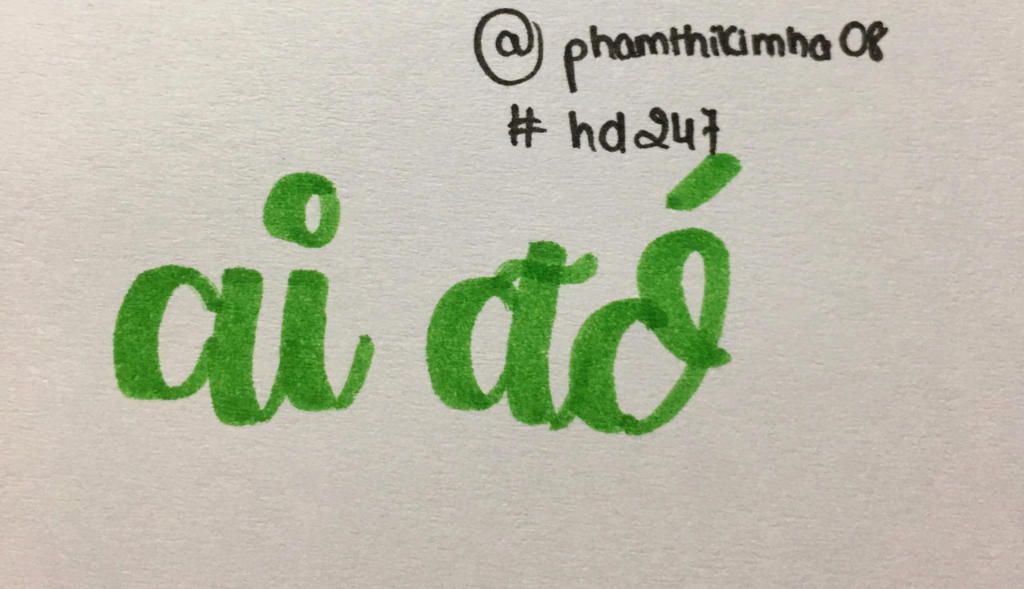 @ phamthikimha08
# hd247
ai đó